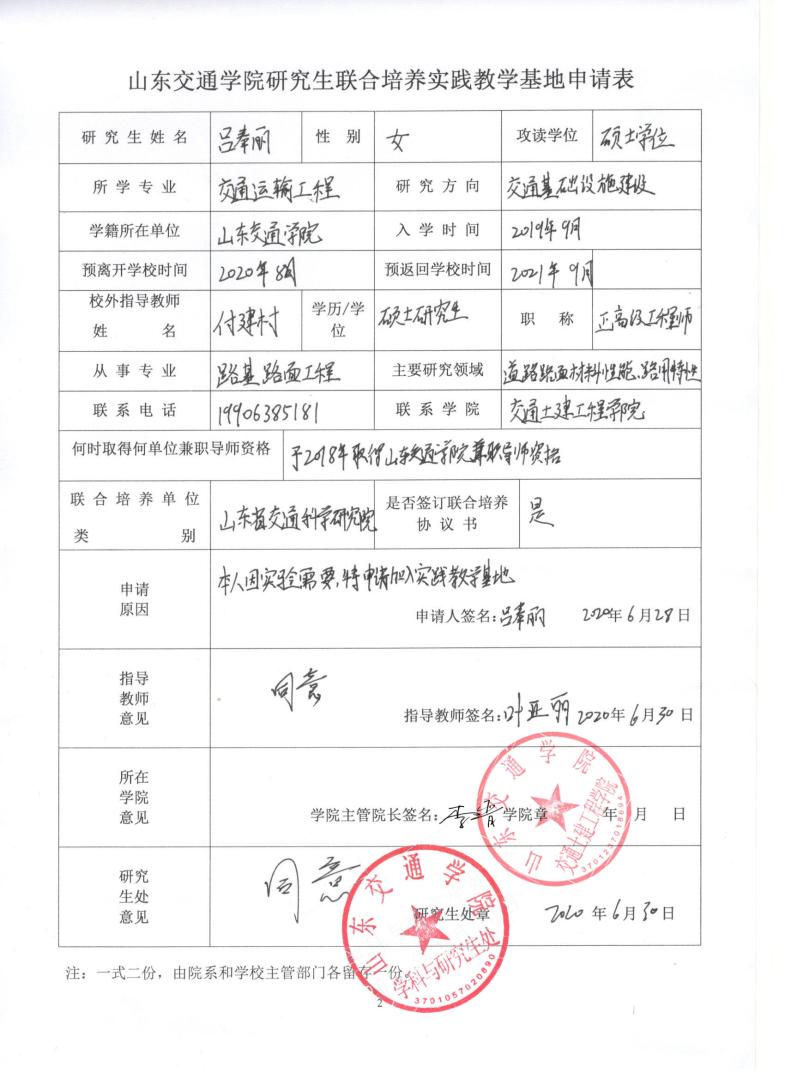 山东交通学院研究生联合培养实践教学基地申请表
研究生姓名 吕奉丽 性别 女 攻读学位 硕士学位
所学专业 交通运输工程 研究方向 交通基础设施建设
学籍所在单位 山东交通学院 入学时间 2019年9月
预离开学校时间 2020年8月 预返回学校时间 2021年9月
校外指导教师姓名 付建村 学历/学位 硕士研究生 职称 正高级工程师
从事专业 路基路面工程 主要研究领域 道路路面材料性能、路用特性
联系电话 19906385181 联系学院 交通土建工程学院
何时取得何单位兼职导师资格 于2018年取得山东交通学院兼职导师资格
联合培养单位类别 山东省交通科学研究院 是否签订联合培养协议书 是
申请原因 本人因实验需要,特申请加入实践教学基地
申请人签名:吕奉丽 2020年6月28日
指导教师意见 同意
指导教师签名:叶亚丽 2020年6月30日
所在学院意见
学院主管院长签名: 李晋 学院章 年 月 日
山东交通学院
交通土建工程学院
3701237018694
研究生处意见 同意
研究生处章 2020年6月30日
山东交通学院
学科与研究生处
3701057020890
注：一式二份，由院系和学校主管部门各留存一份。
2